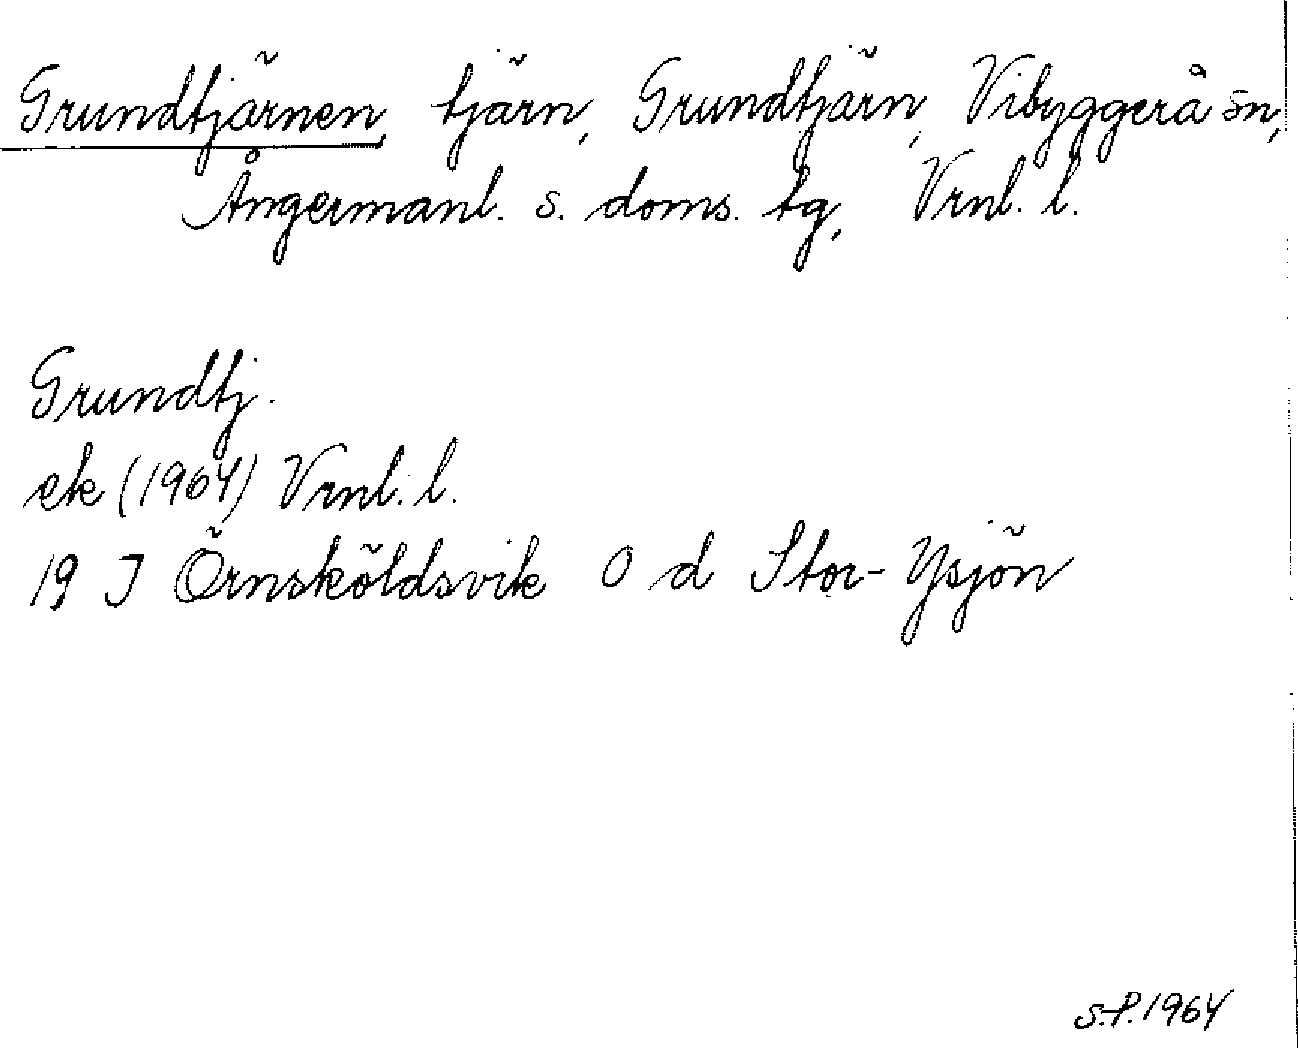 Grundtjärnen, tjärn, Grundtjärn, Vibyggerå sn,
Ångermanl. s. doms. tg, Vrnl. l.
Grundtj.
ek (1964) Vrnl. l.
19 J Örnsköldsvik O d Stor-Ysjön
S.P. 1964